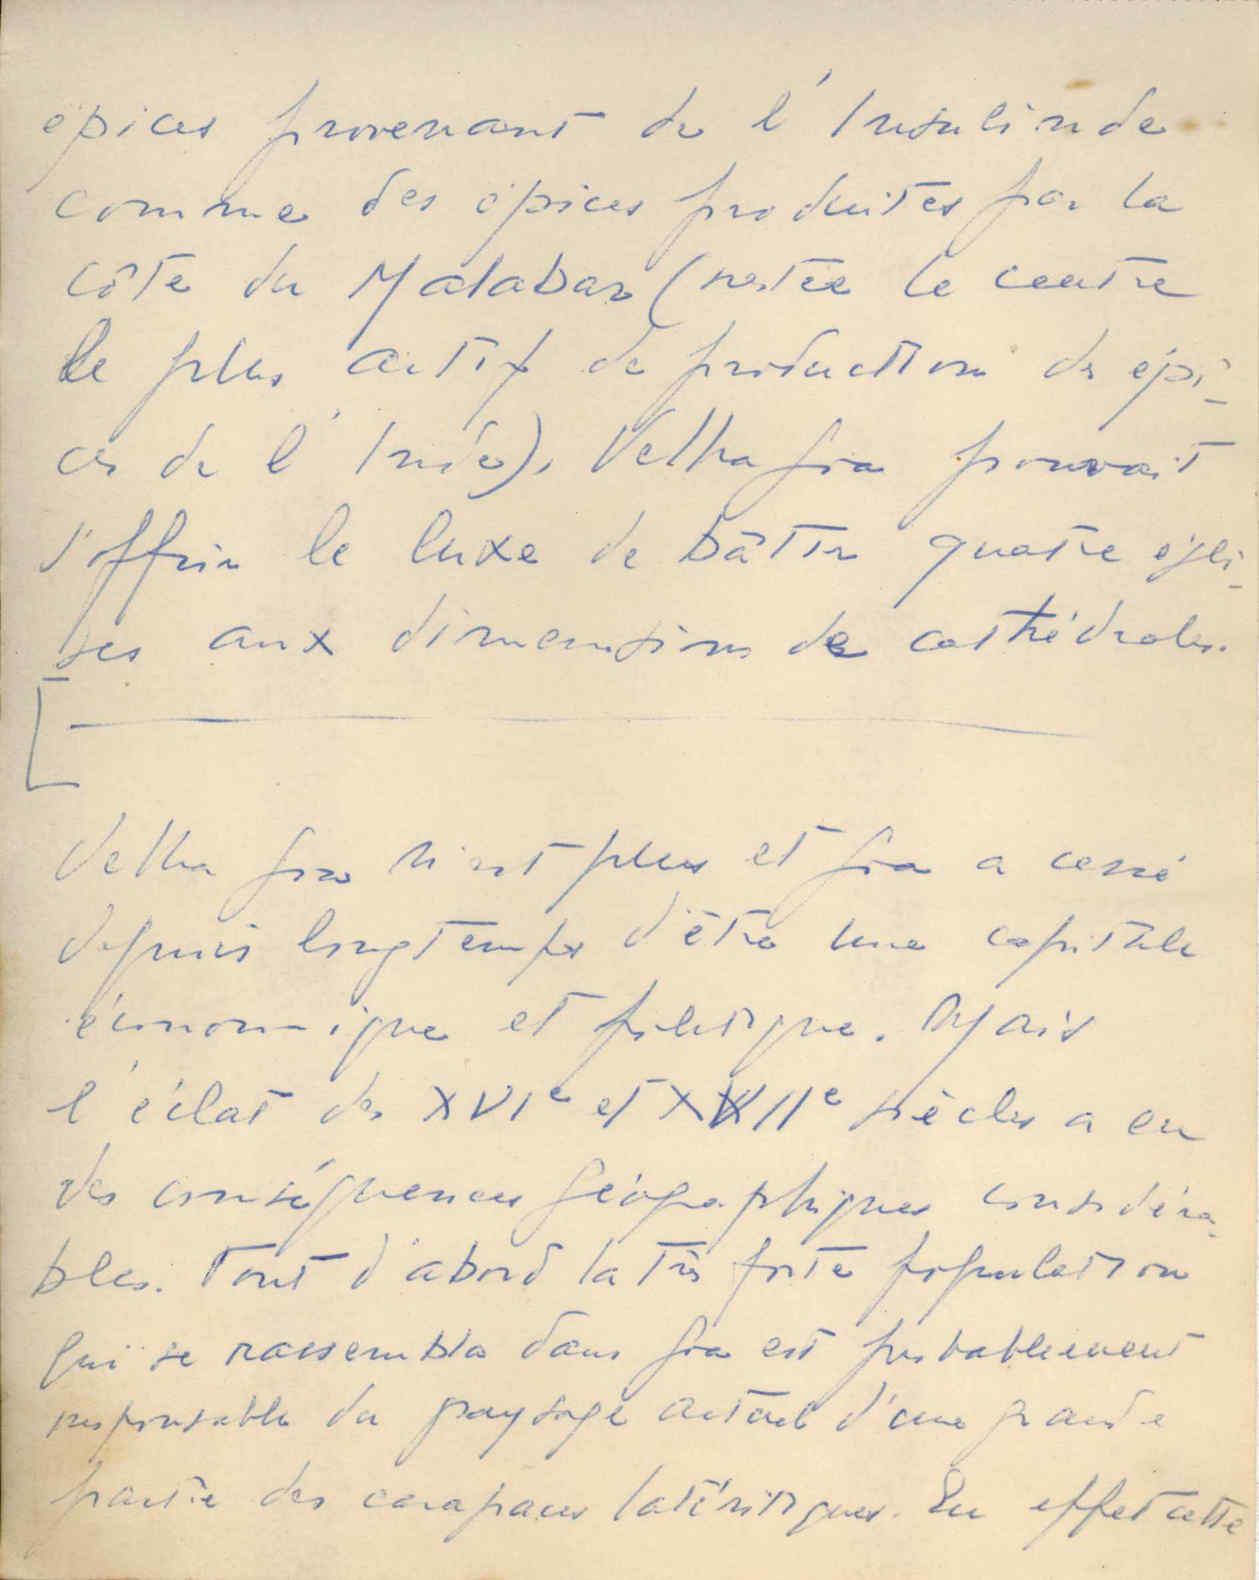 épices provenant de l'Insulinde
comme des épices produites par la
côte du Malabar (restée le centre
le plus actif de production des épi-
ces de l'Inde), Velha Goa pouvait
s'offrir le luxe de bâtir quatre égli-
ses aux dimensions de cathédrales.
Velha Goa n'est plus et Goa a cessé
depuis longtemps d'être une capitale
économique et politique. Mais
l'éclat des XVIe et XVIIe siècles a eu
des conséquences géographiques considéra-
bles. Tout d'abord la très forte population
qui se rassembla dans Goa est probablement
responsable du paysage actuel d'une grande
partie des carapaces latéritiques. En effet cette